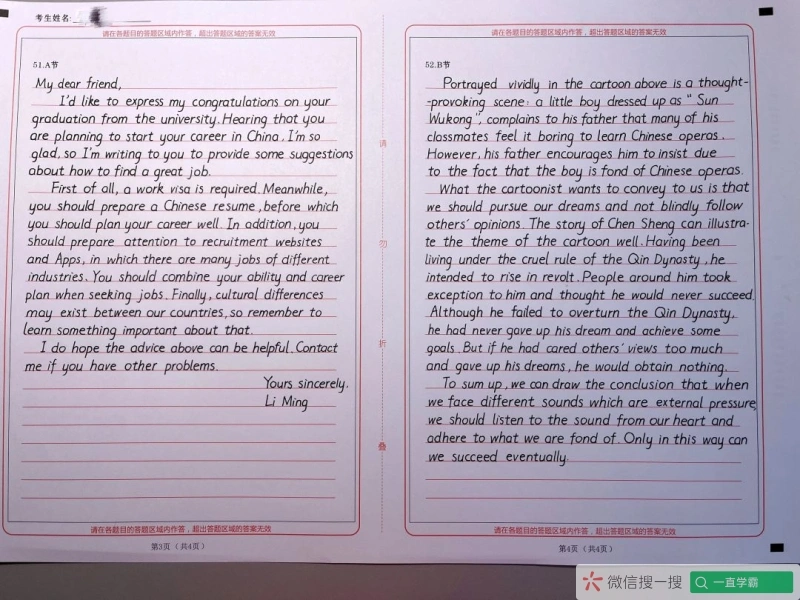 考生姓名:
请在各题目的答题区域内作答，超出答题区域的答案无效
51.A节
My dear friend,
I'd like to express my congratulations on your
graduation from the university. Hearing that you
are planning to start your career in China. I'm so
glad, so I'm writing to you to provide some suggestions
about how to find a great job.
First of all, a work visa is required. Meanwhile,
you should prepare a Chinese resume, before which
you should plan your career well. In addition, you
should prepare attention to recruitment websites
and Apps, in which there are many jobs of different
industries. You should combine your ability and career
plan when seeking jobs. Finally, cultural differences
may exist between our countries, so remember to
learn something important about that.
I do hope the advice above can be helpful. Contact
me if you have other problems.
Yours sincerely.
Li Ming
请在各题目的答题区域内作答，超出答题区域的答案无效
第3页（共4页）
请
勿
折
叠
请在各题目的答题区域内作答，超出答题区域的答案无效
52.B节
Portrayed vividly in the cartoon above is a thought-
-provoking scene: a little boy dressed up as "Sun
Wukong", complains to his father that many of his
classmates feel it boring to learn Chinese operas.
However, his father encourages him to insist due
to the fact that the boy is fond of Chinese operas.
What the cartoonist wants to convey to us is that
we should pursue our dreams and not blindly follow
others' opinions. The story of Chen Sheng can illustra-
te the theme of the cartoon well. Having been
living under the cruel rule of the Qin Dynasty, he
intended to rise in revolt. People around him took
exception to him and thought he would never succeed.
Although he failed to overturn the Qin Dynasty,
he had never gave up his dream and achieve some
goals. But if he had cared others' views too much
and gave up his dreams, he would obtain nothing.
To sum up, we can draw the conclusion that when
we face different sounds which are external pressure,
we should listen to the sound from our heart and
adhere to what we are fond of. Only in this way can
we succeed eventually.
请在各题目的答题区域内作答，超出答题区域的答案无效
第4页（共4页）
微信搜一搜
一直学霸